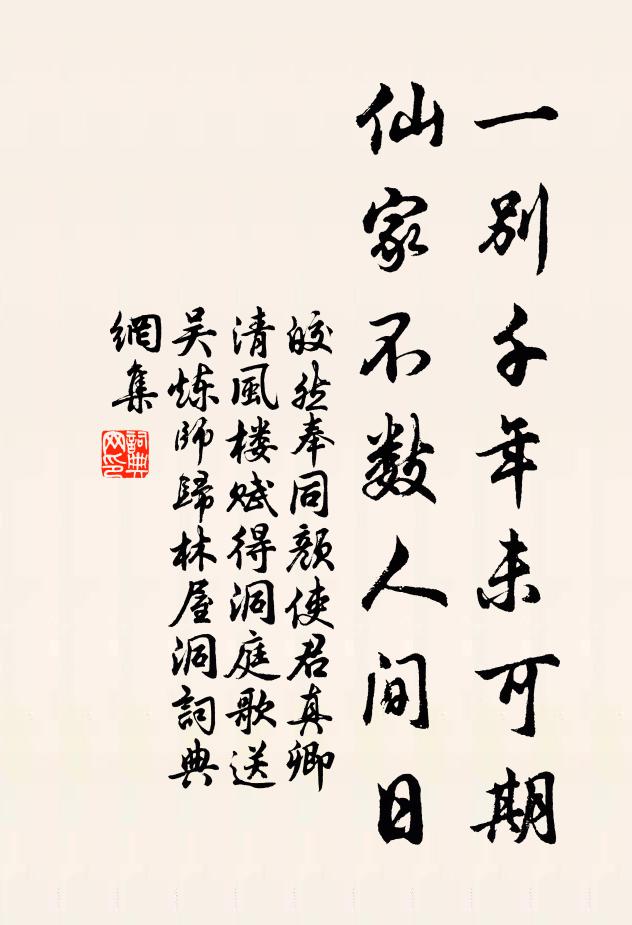 一别千年未可期
仙家不数人间日
皎然奉同颜使君真卿
清風楼赋得洞庭歌送
吴炼师歸林屋洞詞典
網集
詞典
网印